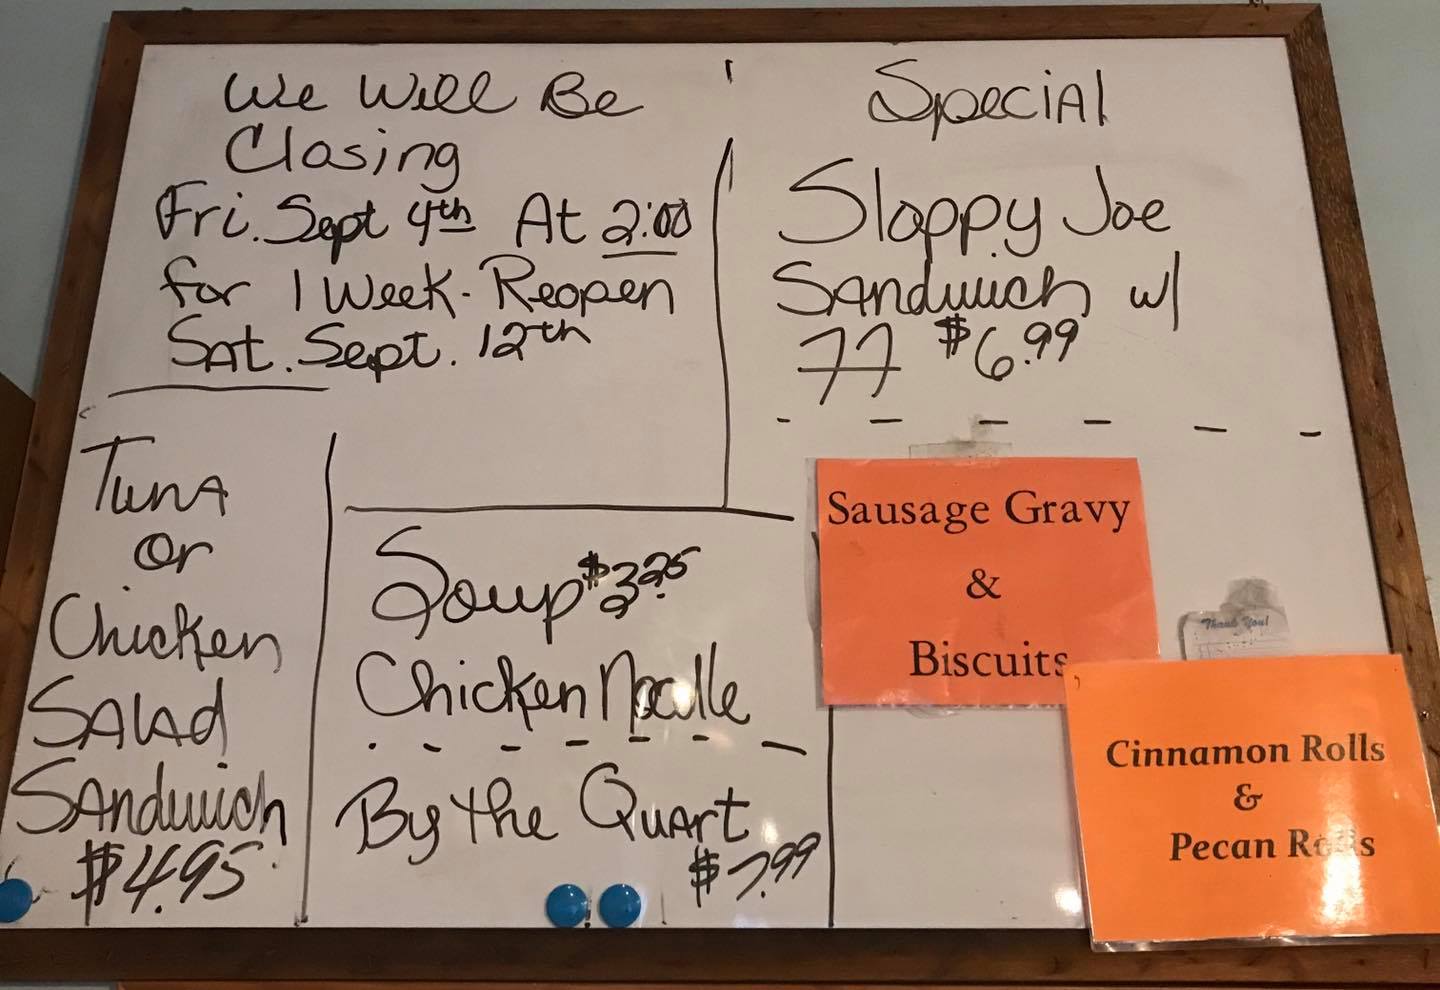 We Will Be
Closing
Fri. Sept 4th At 2:00
for 1 Week - Reopen
Sat. Sept. 12th
Special
Sloppy Joe
Sandwich w/
FF $6.99
Tuna
or
Chicken
Salad
Sandwich
$4.95
Soup $3.25
Chicken Noodle
By the Quart
$7.99
Sausage Gravy
&
Biscuits
Thank You!
Cinnamon Rolls
&
Pecan Rolls